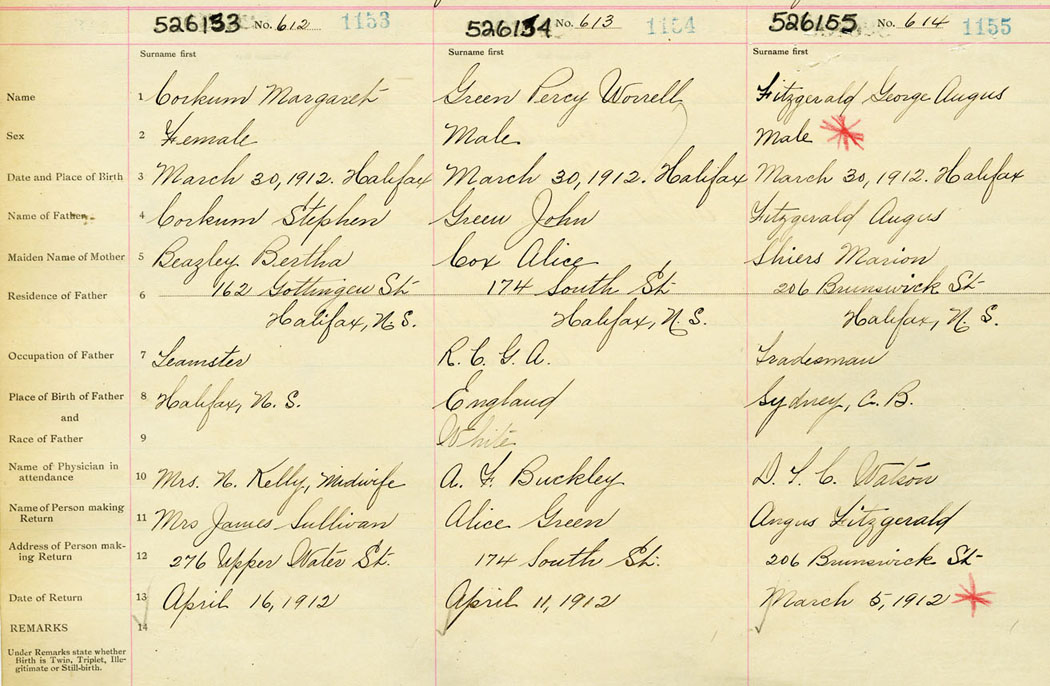 526153 No. 612 1153 526154 No. 613 1154 526155 No. 614 1155
Surname first Surname first Surname first
Name 1 Corkum Margaret Green Percy Worrell Fitzgerald George Augus
Sex 2 Female Male Male
Date and Place of Birth 3 March 30, 1912. Halifax March 30, 1912. Halifax March 30, 1912. Halifax
Name of Father 4 Corkum Stephen Green John Fitzgerald Augus
Maiden Name of Mother 5 Beazley Bertha Cox Alice Shiers Marion
Residence of Father 6 162 Gottingen St 174 South St 206 Brunswick St
Halifax, N.S. Halifax, N.S. Halifax, N.S.
Occupation of Father 7 Teamster R.C.G.A. Tradesman
Place of Birth of Father 8 Halifax, N.S. England Sydney, C.B.
and
Race of Father 9 White
Name of Physician in attendance 10 Mrs. N. Kelly, Midwife A. F. Buckley D. T. C. Watson
Name of Person making Return 11 Mrs James Sullivan Alice Green Angus Fitzgerald
Address of Person mak-ing Return 12 276 Upper Water St. 174 South St. 206 Brunswick St
Date of Return 13 April 16, 1912 April 11, 1912 March 5, 1912
REMARKS 14
Under Remarks state whether
Birth is Twin, Triplet, Ille-
gitimate or Still-birth.